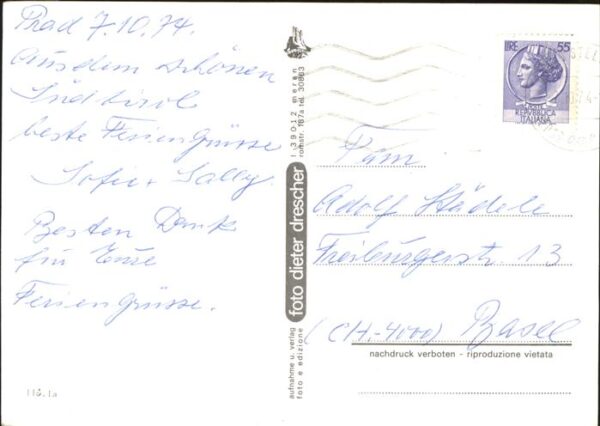 Prad 7.10.74.
Aus dem schönen
Südtirol
beste Feriengrüsse
Sofie + Sally.
Besten Dank
für Eure
Feriengrüsse.
118.1a
I 39012 meran
romstr. 187a tel. 30863
foto dieter drescher
aufnahme u. verlag
foto e edizione
LIRE 55
REPVBBLICA
ITALIANA
Fam.
Adolf Städele
Freiburgerstr. 13
(CH-4000) Basel
nachdruck verboten - riproduzione vietata